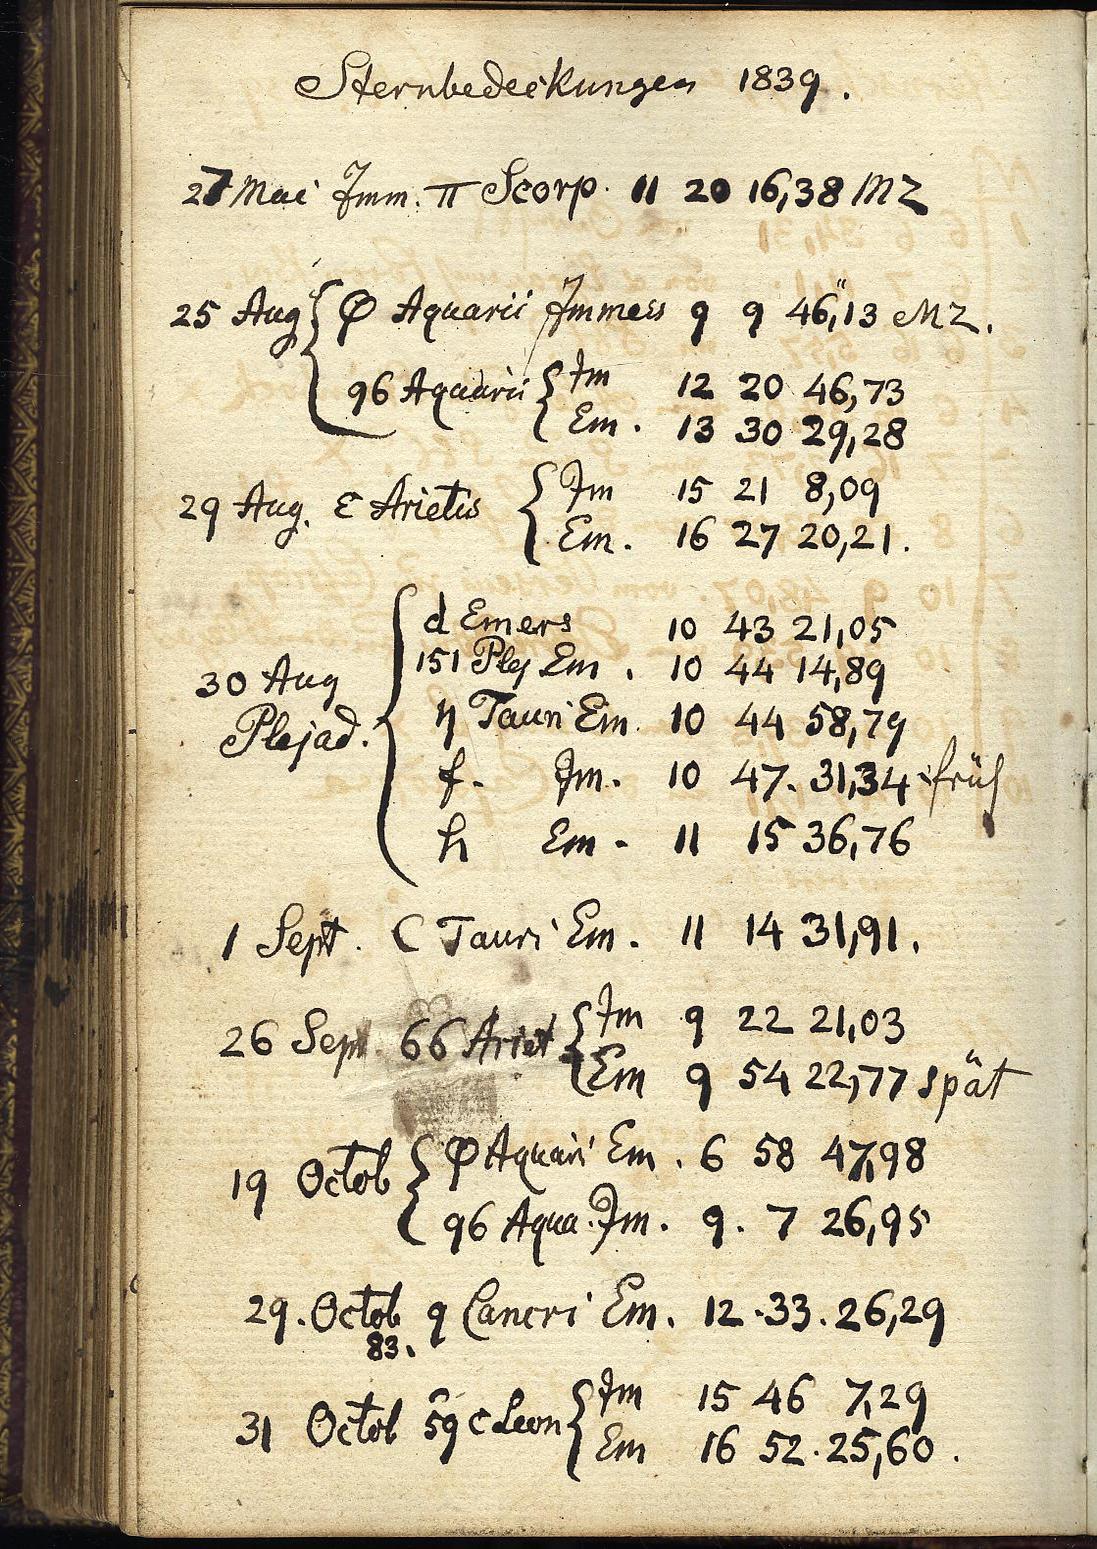 Sternbedeckungen 1839.
27 Mai Imm. π Scorp. 11 20 16,38 MZ
25 Aug { φ Aquarii Immers 9 9 46",13 MZ.
96 Aquarii { Im 12 20 46,73
Em. 13 30 29,28
29 Aug. ε Arietis { Im 15 21 8,09
Em. 16 27 20,21.
30 Aug Plejad. { d Emers 10 43 21,05
151 Plej Em. 10 44 14,89
η Tauri Em. 10 44 58,79
f. Im. 10 47. 31,34 früh
h Em. 11 15 36,76
1 Sept. C Tauri Em. 11 14 31,91.
26 Sept. 66 Ariet { Im 9 22 21,03
Em 9 54 22,77 spät
19 Octob { φ Aquari Em. 6 58 47,98
96 Aqua. Im. 9. 7 26,95
29. Octob 9 Cancri Em. 12.33.26,29
83.
31 Octob 59 c Leon { Im 15 46 7,29
Em 16 52.25,60.